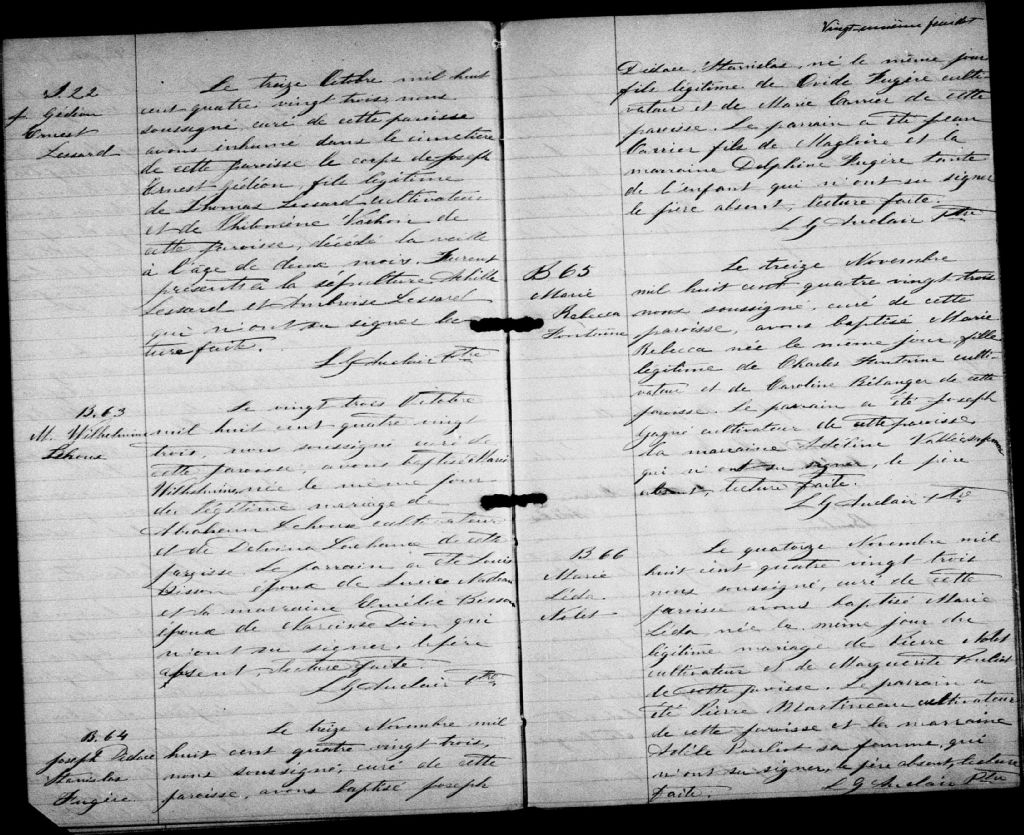 S 22
f. Gédéon
Ernest
Lessard
Le treize Octobre mil huit
cent quatre vingt trois, nous
soussigné, curé de cette paroisse
avons inhumé dans le cimetière
de cette paroisse le corps de Joseph
Ernest Gédéon, fils légitime
de Thomas Lessard cultivateur
et de Philomène Vachon de
cette paroisse, décédé la veille
à l'âge de deux mois. Furent
présents à la sépulture Achille
Lessard et Ambroise Lessard
qui n'ont su signer lec
ture faite.
L G Auclair Ptre
B. 63
M. Wilhelmine
Lehoux
Le vingt trois Octobre
mil huit cent quatre vingt
trois, nous soussigné curé de
cette paroisse, avons baptisé Marie
Wilhelmine, née le même jour
du légitime mariage de
Abraham Lehoux cultivateur
et de Delvina Lachance de cette
paroisse. Le parrain a été Louis
Bisson époux de Luce Nadeau
et la marraine Emélie Bisson
épouse de Narcisse Dion qui
n'ont su signer, le père
absent, lecture faite.
L G Auclair Ptre
B. 64
Joseph Didace
Stanislas
Fugère
Le treize Novembre mil
huit cent quatre vingt trois,
nous soussigné, curé de cette
paroisse, avons baptisé Joseph
Vingt-unième feuillet
Didace, Stanislas, né le même jour
fils légitime de Ovide Fugère culti-
vateur et de Marie Carrier de cette
paroisse. Le parrain a été Jean
Carrier fils de Magloire et la
marraine Delphine Fugère tante
de l'enfant qui n'ont su signer
le père absent, lecture faite.
L G Auclair Ptre
B 65
Marie
Rebecca
Fontaine
Le treize Novembre
mil huit cent quatre vingt trois
nous soussigné, curé de cette
paroisse, avons baptisé Marie
Rebecca née le même jour, fille
légitime de Charles Fontaine culti-
vateur et de Caroline Bélanger de cette
paroisse. Le parrain a été Joseph
Gagné cultivateur de cette paroisse
la marraine Adeline Vallée sa femme
qui n'ont su signer, le père
absent, lecture faite.
L G Auclair Ptre
B 66
Marie
Léda
Nolet
Le quatorze Novembre mil
huit cent quatre vingt trois
nous soussigné, curé de cette
paroisse avons baptisé Marie
Léda née le même jour du
légitime mariage de Pierre Nolet
cultivateur et de Marguerite Pouliot
de cette paroisse. Le parrain a
été Pierre Martineau cultivateur
de cette paroisse et la marraine
Adèle Pouliot sa femme, qui
n'ont su signer, le père absent, lecture
faite.
L G Auclair Ptre